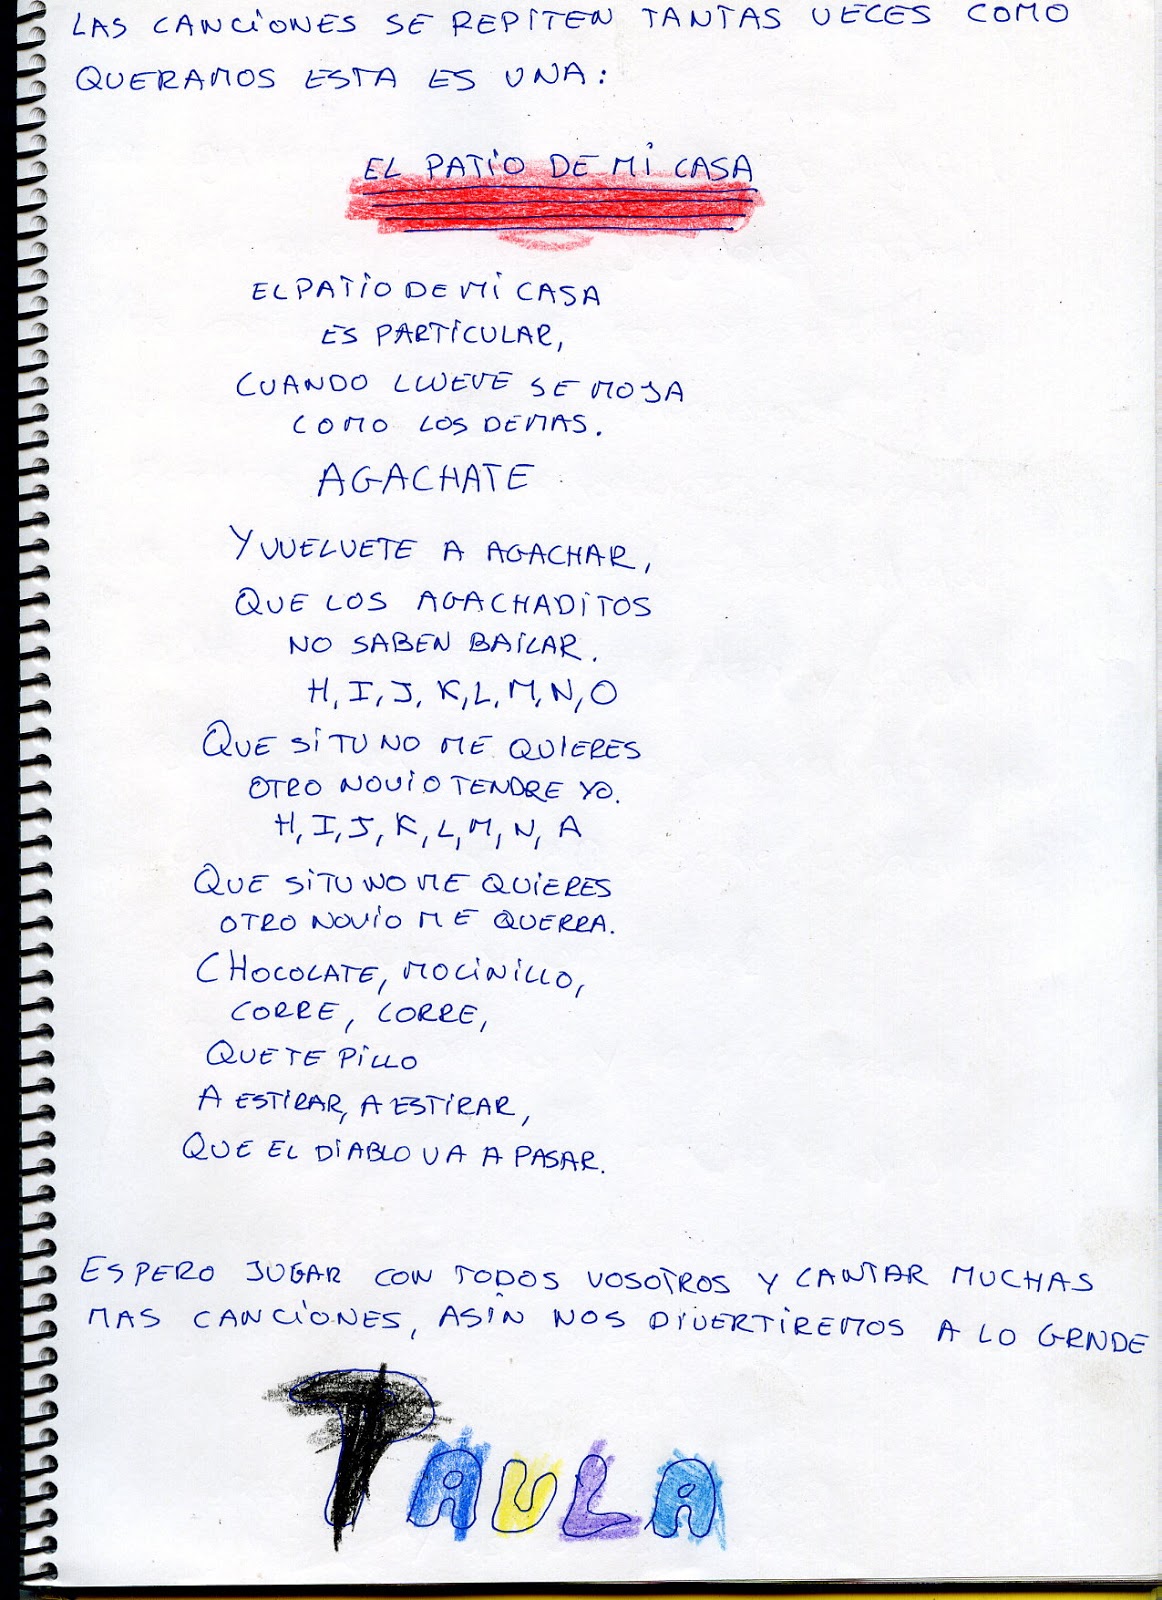 LAS CANCIONES SE REPITEN TANTAS VECES COMO
QUERAMOS ESTA ES UNA:
EL PATIO DE MI CASA
EL PATIO DE MI CASA
ES PARTICULAR,
CUANDO LLUEVE SE MOJA
COMO LOS DEMAS.
AGACHATE
Y VUELVETE A AGACHAR,
QUE LOS AGACHADITOS
NO SABEN BAILAR.
H, I, J, K, L, M, N, O
QUE SI TU NO ME QUIERES
OTRO NOVIO TENDRE YO.
H, I, J, K, L, M, N, A
QUE SI TU NO ME QUIERES
OTRO NOVIO ME QUERRA.
CHOCOLATE, MOLINILLO,
CORRE, CORRE,
QUE TE PILLO
A ESTIRAR, A ESTIRAR,
QUE EL DIABLO VA A PASAR.
ESPERO JUGAR CON TODOS VOSOTROS Y CANTAR MUCHAS
MAS CANCIONES, ASIN NOS DIVERTIREMOS A LO GRNDE
PAULA